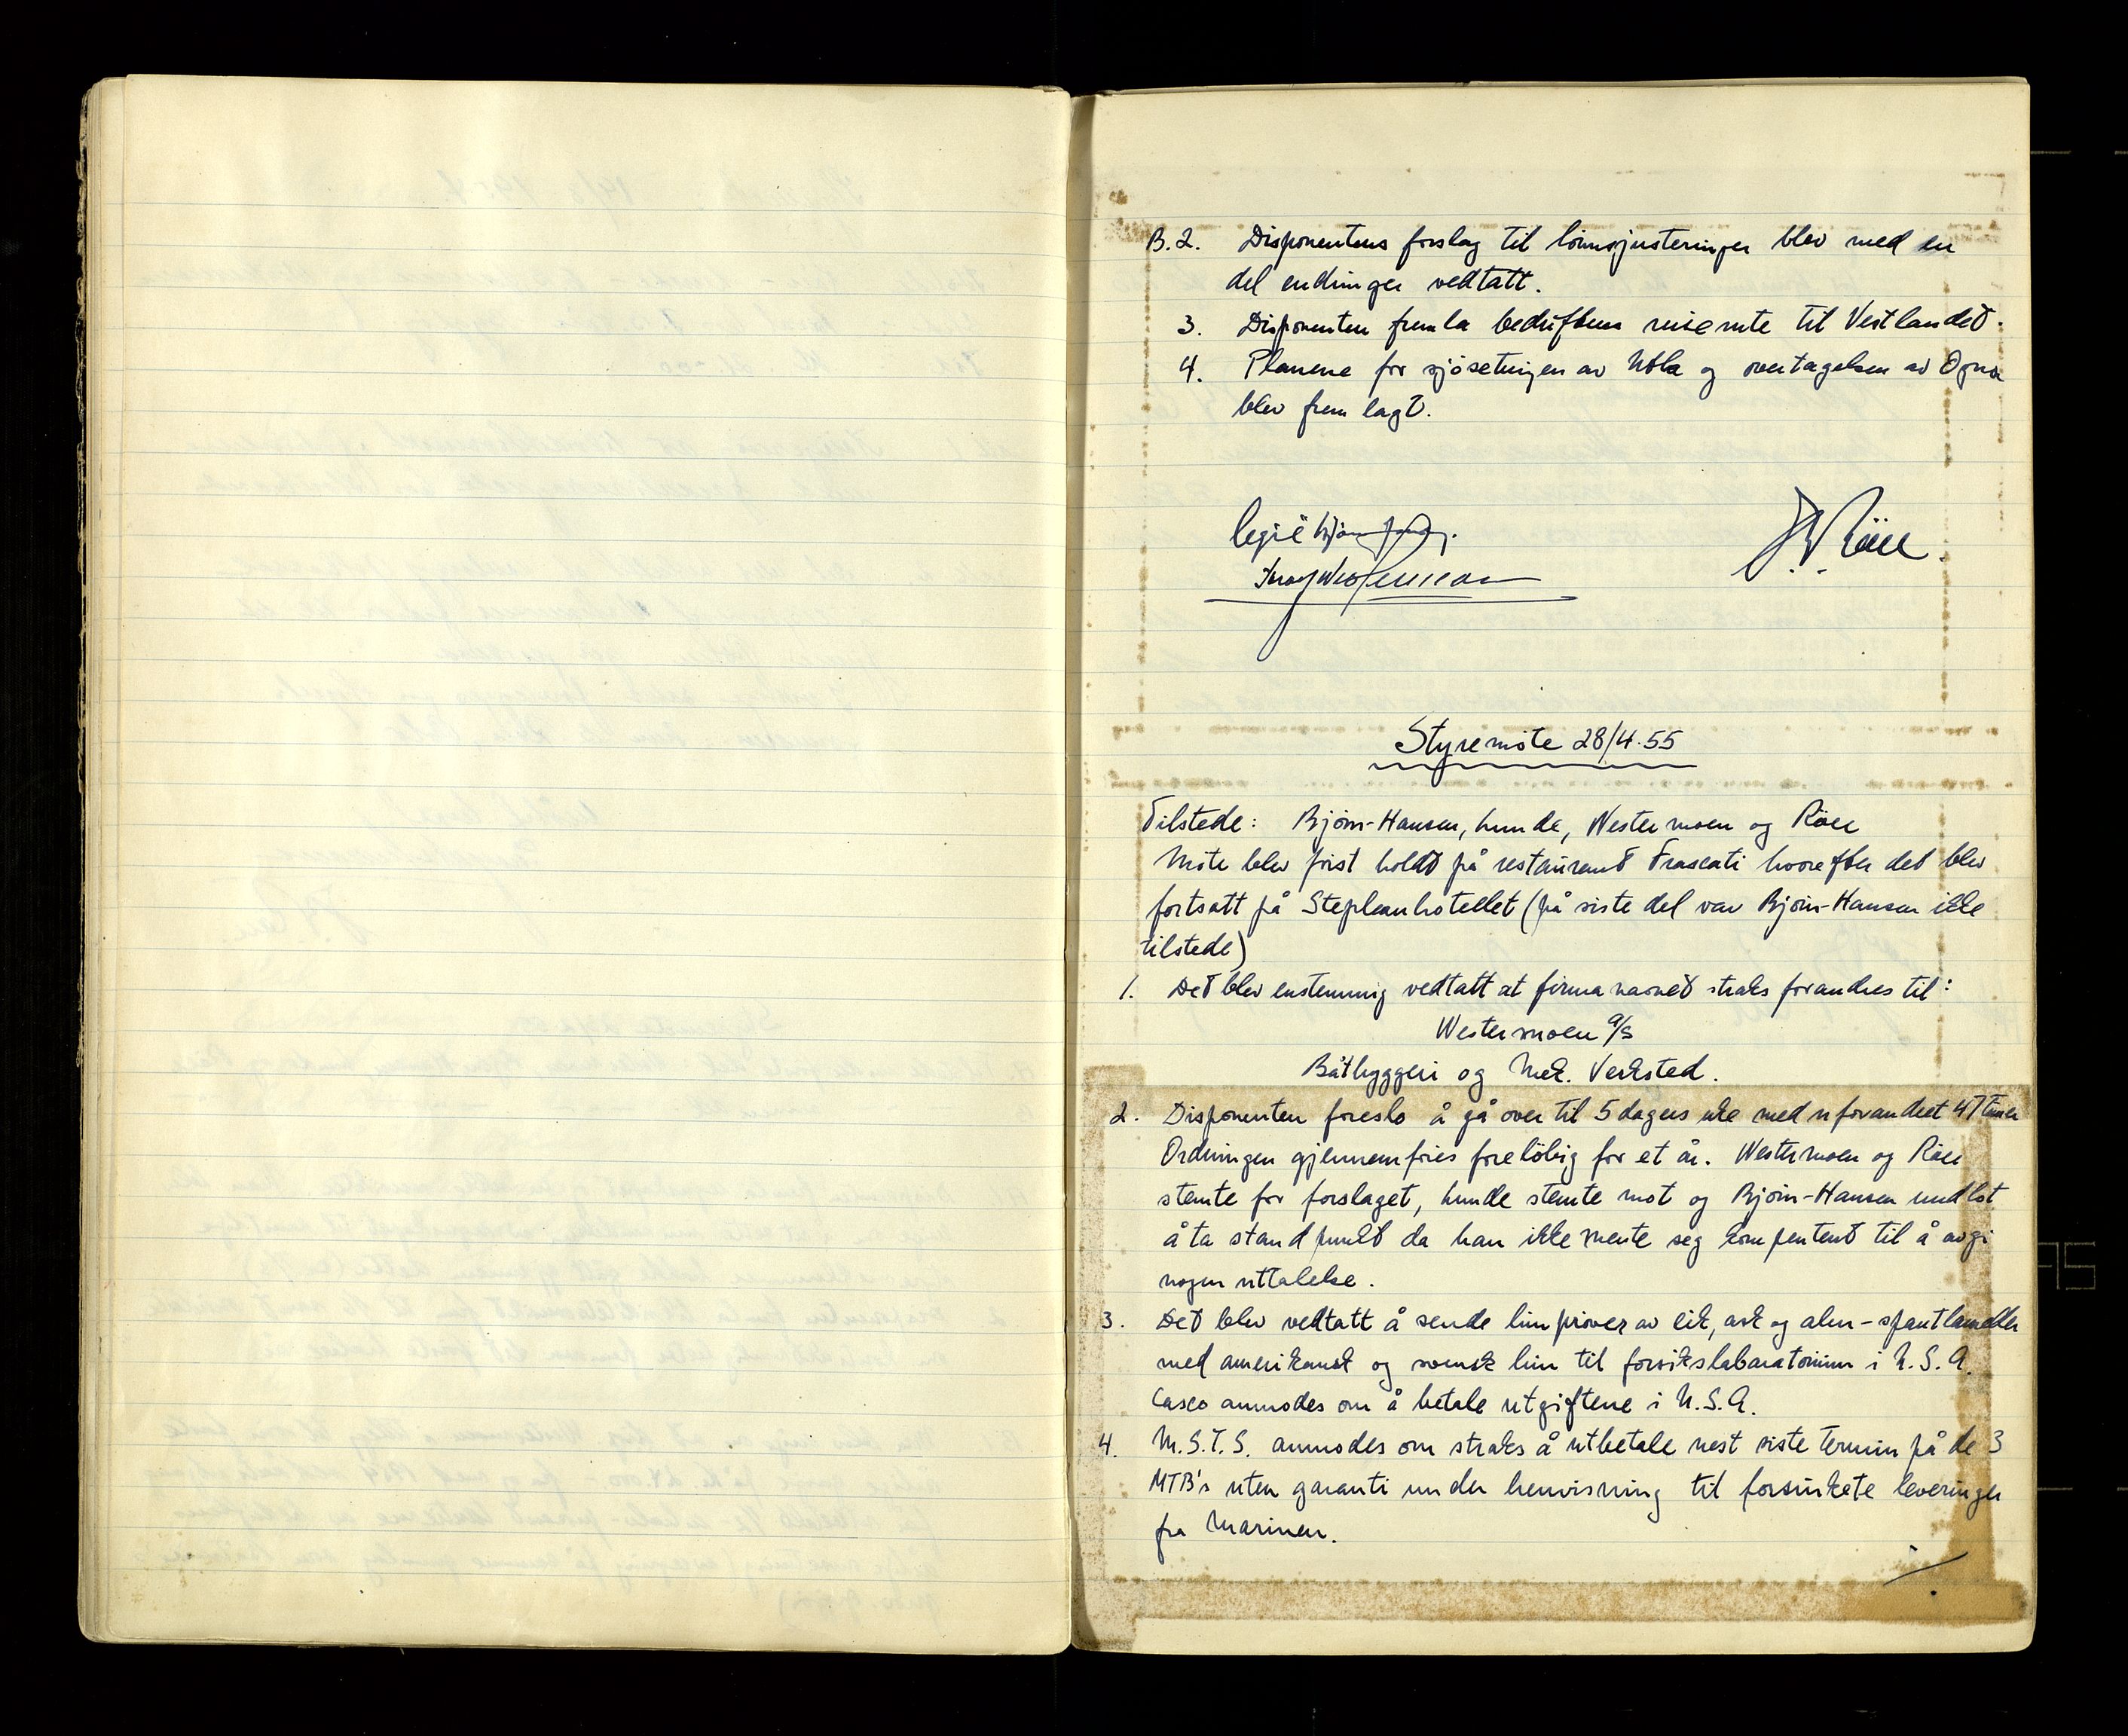 B.2. Disponentens forslag til lønnsjusteringer blev med en
del endringer vedtatt.
3. Disponenten fremla bedriftens reiserute til Vestlandet.
4. Planene for sjøsetningen av Utla og overtagelsen av Ogna
blev fremlagt.
J.W. Röer.
Styremøte 28/4.55
Tilstede: Bjørn-Hansen, Lunde, Westermoen og Röer
Møte blev først holdt på restaurant Frascati hvorefter det blev
fortsatt på Stephanhotellet (på siste del var Bjørn-Hansen ikke
tilstede)
1. Det blev enstemmig vedtatt at firmanavnet straks forandres til:
Westermoen a/s
Båtbyggeri og Mek. Verksted.
2. Disponenten foreslo å gå over til 5 dagers uke med uforandret 47 timer
Ordningen gjennemføres foreløbig for et år. Westermoen og Röer
stemte for forslaget, Lunde stemte mot og Bjørn-Hansen undlot
å ta standpunkt da han ikke mente seg kompentent til å avgi
nogen uttalelse.
3. Det blev vedtatt å sende limprøver av eik, ask og alm-spantlameller
med amerikansk og svensk lim til forsøkslabaratorium i U.S.A.
Casco anmodes om å betale utgiftene i U.S.A.
4. M.S.T.S. anmodes om straks å utbetale nest siste termin på de 3
MTB's uten garanti under henvisning til forsinkete leveringer
fra Marinen.